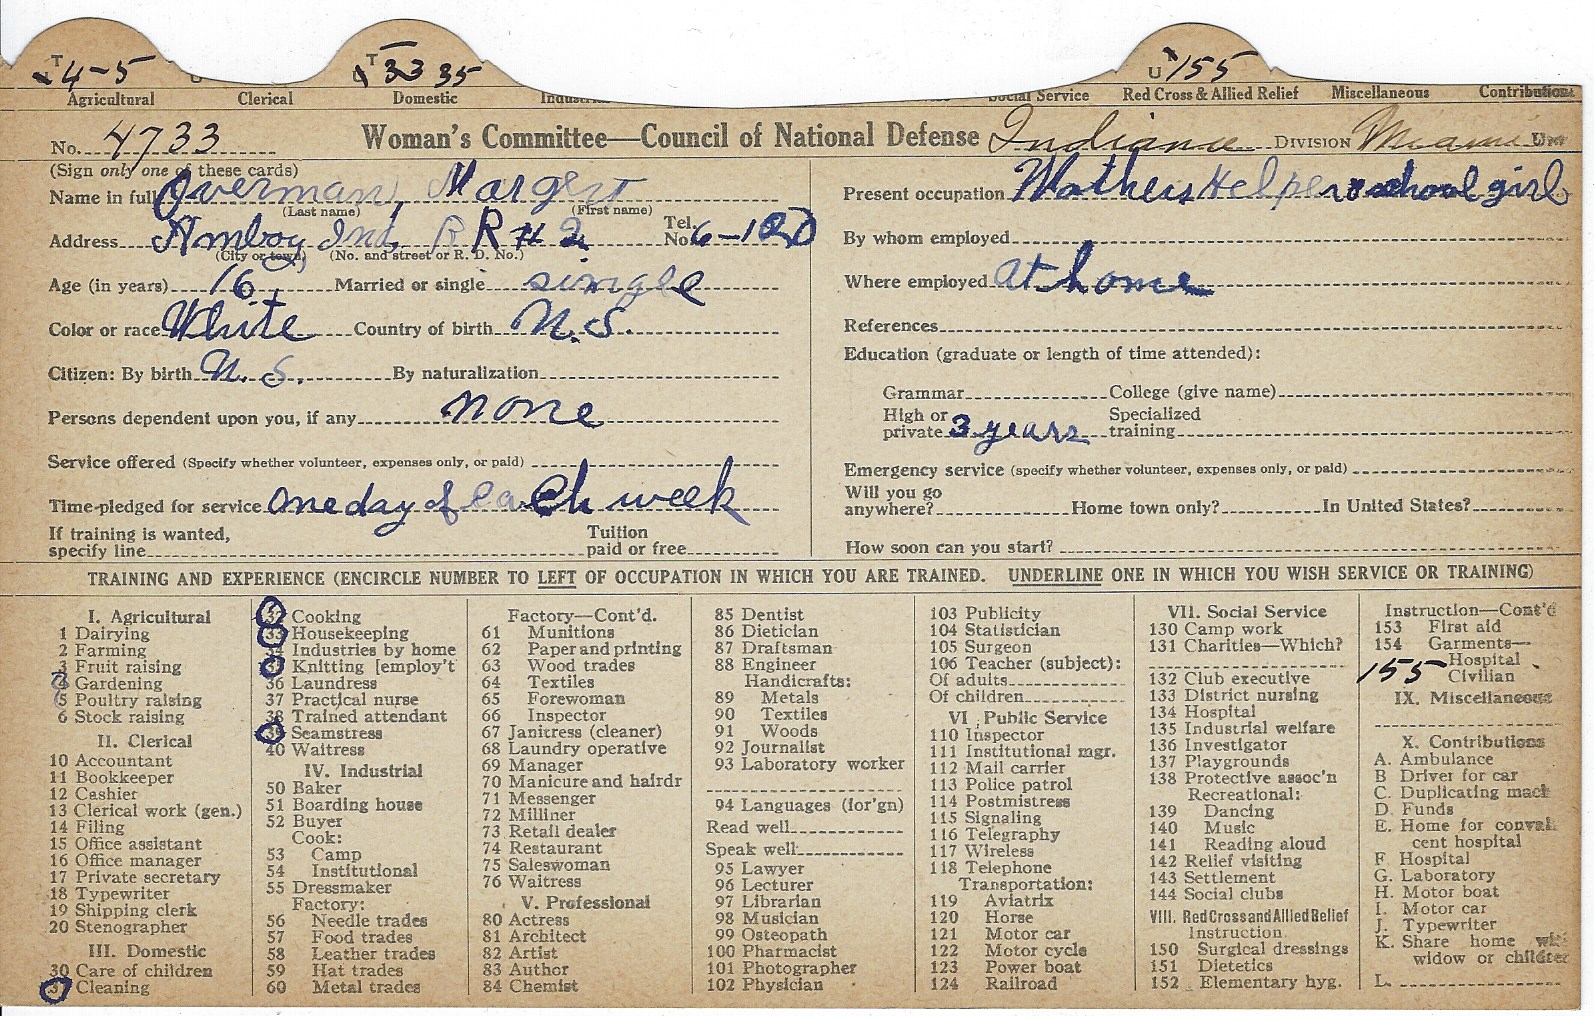 T 4-5 T 33 35 U 155
Agricultural Clerical Domestic Social Service Red Cross & Allied Relief Miscellaneous Contributions
No. 4733 Woman's Committee—Council of National Defense Indiana DIVISION Miami
(Sign only one of these cards)
Name in full Overman, Margert
(Last name) (First name)
Address Amboy Ind. R R # 2. Tel. No. 6-10
(City or town) (No. and street or R. D. No.)
Age (in years) 16 Married or single single
Color or race White Country of birth U.S.
Citizen: By birth U.S. By naturalization
Persons dependent upon you, if any none
Service offered (Specify whether volunteer, expenses only, or paid)
Time pledged for service one day of each week
If training is wanted, specify line Tuition paid or free
Present occupation Mothers Helper & school girl
By whom employed
Where employed at home
References
Education (graduate or length of time attended):
Grammar College (give name)
High or private 3 years Specialized training
Emergency service (specify whether volunteer, expenses only, or paid)
Will you go anywhere? Home town only? In United States?
How soon can you start?
TRAINING AND EXPERIENCE (ENCIRCLE NUMBER TO LEFT OF OCCUPATION IN WHICH YOU ARE TRAINED. UNDERLINE ONE IN WHICH YOU WISH SERVICE OR TRAINING)
I. Agricultural
1 Dairying
2 Farming
3 Fruit raising
4 Gardening
5 Poultry raising
6 Stock raising
II. Clerical
10 Accountant
11 Bookkeeper
12 Cashier
13 Clerical work (gen.)
14 Filing
15 Office assistant
16 Office manager
17 Private secretary
18 Typewriter
19 Shipping clerk
20 Stenographer
III. Domestic
30 Care of children
31 Cleaning
32 Cooking
33 Housekeeping
34 Industries by home
35 Knitting [employ't
36 Laundress
37 Practical nurse
38 Trained attendant
39 Seamstress
40 Waitress
IV. Industrial
50 Baker
51 Boarding house
52 Buyer
Cook:
53 Camp
54 Institutional
55 Dressmaker
Factory:
56 Needle trades
57 Food trades
58 Leather trades
59 Hat trades
60 Metal trades
Factory—Cont'd.
61 Munitions
62 Paper and printing
63 Wood trades
64 Textiles
65 Forewoman
66 Inspector
67 Janitress (cleaner)
68 Laundry operative
69 Manager
70 Manicure and hairdr
71 Messenger
72 Milliner
73 Retail dealer
74 Restaurant
75 Saleswoman
76 Waitress
V. Professional
80 Actress
81 Architect
82 Artist
83 Author
84 Chemist
85 Dentist
86 Dietician
87 Draftsman
88 Engineer
Handicrafts:
89 Metals
90 Textiles
91 Woods
92 Journalist
93 Laboratory worker
94 Languages (for'gn)
Read well
Speak well
95 Lawyer
96 Lecturer
97 Librarian
98 Musician
99 Osteopath
100 Pharmacist
101 Photographer
102 Physician
103 Publicity
104 Statistician
105 Surgeon
106 Teacher (subject):
Of adults
Of children
VI. Public Service
110 Inspector
111 Institutional mgr.
112 Mail carrier
113 Police patrol
114 Postmistress
115 Signaling
116 Telegraphy
117 Wireless
118 Telephone
Transportation:
119 Aviatrix
120 Horse
121 Motor car
122 Motor cycle
123 Power boat
124 Railroad
VII. Social Service
130 Camp work
131 Charities—Which?
132 Club executive
133 District nursing
134 Hospital
135 Industrial welfare
136 Investigator
137 Playgrounds
138 Protective assoc'n
Recreational:
139 Dancing
140 Music
141 Reading aloud
142 Relief visiting
143 Settlement
144 Social clubs
VIII. Red Cross and Allied Relief
Instruction.
150 Surgical dressings
151 Dietetics
152 Elementary hyg.
Instruction—Cont'd
153 First aid
154 Garments—
Hospital
155 Civilian
IX. Miscellaneous
X. Contributions
A. Ambulance
B Driver for car
C. Duplicating mach
D. Funds
E. Home for conval
cent hospital
F. Hospital
G. Laboratory
H. Motor boat
I. Motor car
J. Typewriter
K. Share home with
widow or children
L.